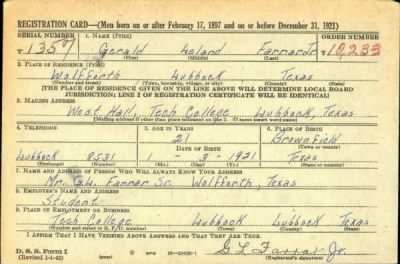 REGISTRATION CARD—(Men born on or after February 17, 1897 and on or before December 31, 1921)
SERIAL NUMBER 1. NAME (Print) ORDER NUMBER
T 1357 Gerald Leland Farrar Jr T10,233
(First) (Middle) (Last)
2. PLACE OF RESIDENCE (Print)
Wolfforth Lubbock Texas
(Number and street) (Town, township, village, or city) (County) (State)
[THE PLACE OF RESIDENCE GIVEN ON THE LINE ABOVE WILL DETERMINE LOCAL BOARD
JURISDICTION; LINE 2 OF REGISTRATION CERTIFICATE WILL BE IDENTICAL]
3. MAILING ADDRESS
West Hall, Tech College Lubbock, Texas
[Mailing address if other than place indicated on line 2. If same insert word same]
4. TELEPHONE 5. AGE IN YEARS 6. PLACE OF BIRTH
21 Brownfield
DATE OF BIRTH (Town or county)
Lubbock 8531 1 - 3 - 1921 Texas
(Exchange) (Number) (Mo.) (Day) (Yr.) (State or country)
7. NAME AND ADDRESS OF PERSON WHO WILL ALWAYS KNOW YOUR ADDRESS
Mr. G.L. Farrar Sr. Wolfforth, Texas
8. EMPLOYER'S NAME AND ADDRESS
Student
9. PLACE OF EMPLOYMENT OR BUSINESS
Tech College Lubbock Lubbock Texas
(Number and street or R. F. D. number) (Town) (County) (State)
I AFFIRM THAT I HAVE VERIFIED ABOVE ANSWERS AND THAT THEY ARE TRUE.
D. S. S. Form 1
(Revised 1-1-42) (over) G L Farrar Jr.
(Registrant's signature)